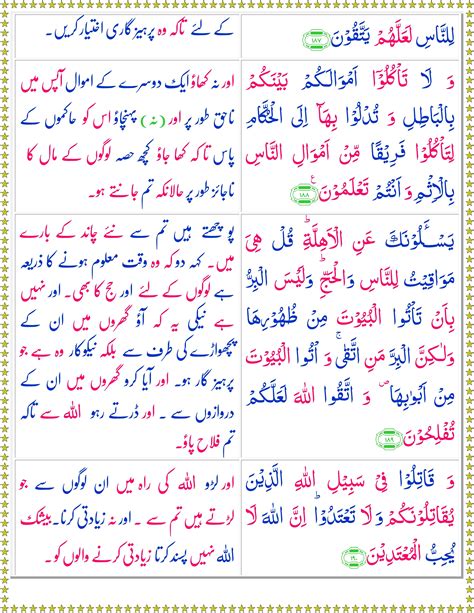 لِلنَّاسِ لَعَلَّهُمْ يَتَّقُوْنَ ﴿۱۸۷﴾
کے لئے تاکہ وہ پرہیز گاری اختیار کریں۔
وَ لَا تَاْكُلُوْٓا اَمْوَالَكُمْ بَيْنَكُمْ
بِالْبَاطِلِ وَ تُدْلُوْا بِهَآ اِلَى الْحُكَّامِ
لِتَاْكُلُوْا فَرِيْقًا مِّنْ اَمْوَالِ النَّاسِ
بِالْاِثْمِ وَ اَنْتُمْ تَعْلَمُوْنَ ﴿۱۸۸﴾ ع
اور نہ کھاؤ ایک دوسرے کے اموال آپس میں
ناحق طور پر اور (نہ) پہنچاؤ اس کو حاکموں کے
پاس تا کہ کھا جاؤ کچھ حصہ لوگوں کے مال کا
ناجائز طور پر حالانکہ تم جانتے ہو۔
يَسْـَٔلُوْنَكَ عَنِ الْاَهِلَّةِ ؕ قُلْ هِىَ
مَوَاقِيْتُ لِلنَّاسِ وَ الْحَجِّ ؕ وَ لَيْسَ الْبِرُّ
بِاَنْ تَاْتُوا الْبُيُوْتَ مِنْ ظُهُوْرِهَا
وَلٰكِنَّ الْبِرَّ مَنِ اتَّقٰى ۚ وَ اْتُوا الْبُيُوْتَ
مِنْ اَبْوَابِهَا ۪ وَ اتَّقُوا اللهَ لَعَلَّكُمْ
تُفْلِحُوْنَ ﴿۱۸۹﴾
پوچھتے ہیں تم سے نئے چاند کے بارے
میں۔ کہہ دو کہ وہ وقت معلوم ہونے کا ذریعہ
ہے لوگوں کے لئے اور حج کا بھی۔ اور نہیں
ہے نیکی یہ کہ آؤ گھروں میں ان کے
پچھواڑے کی طرف سے بلکہ نیکوکار وہ ہے جو
پرہیز گار ہو۔ اور آیا کرو گھروں میں ان کے
دروازوں سے۔ اور ڈرتے رہو اللہ سے تاکہ
تم فلاح پاؤ۔
وَ قَاتِلُوْا فِىْ سَبِيْلِ اللهِ الَّذِيْنَ
يُقَاتِلُوْنَكُمْ وَ لَا تَعْتَدُوْا ؕ اِنَّ اللهَ لَا
يُحِبُّ الْمُعْتَدِيْنَ ﴿۱۹۰﴾
اور لڑو اللہ کی راہ میں ان لوگوں سے جو
لڑتے ہیں تم سے ۔ اور نہ زیادتی کرنا۔ بیشک
اللہ نہیں پسند کرتا زیادتی کرنے والوں کو ۔